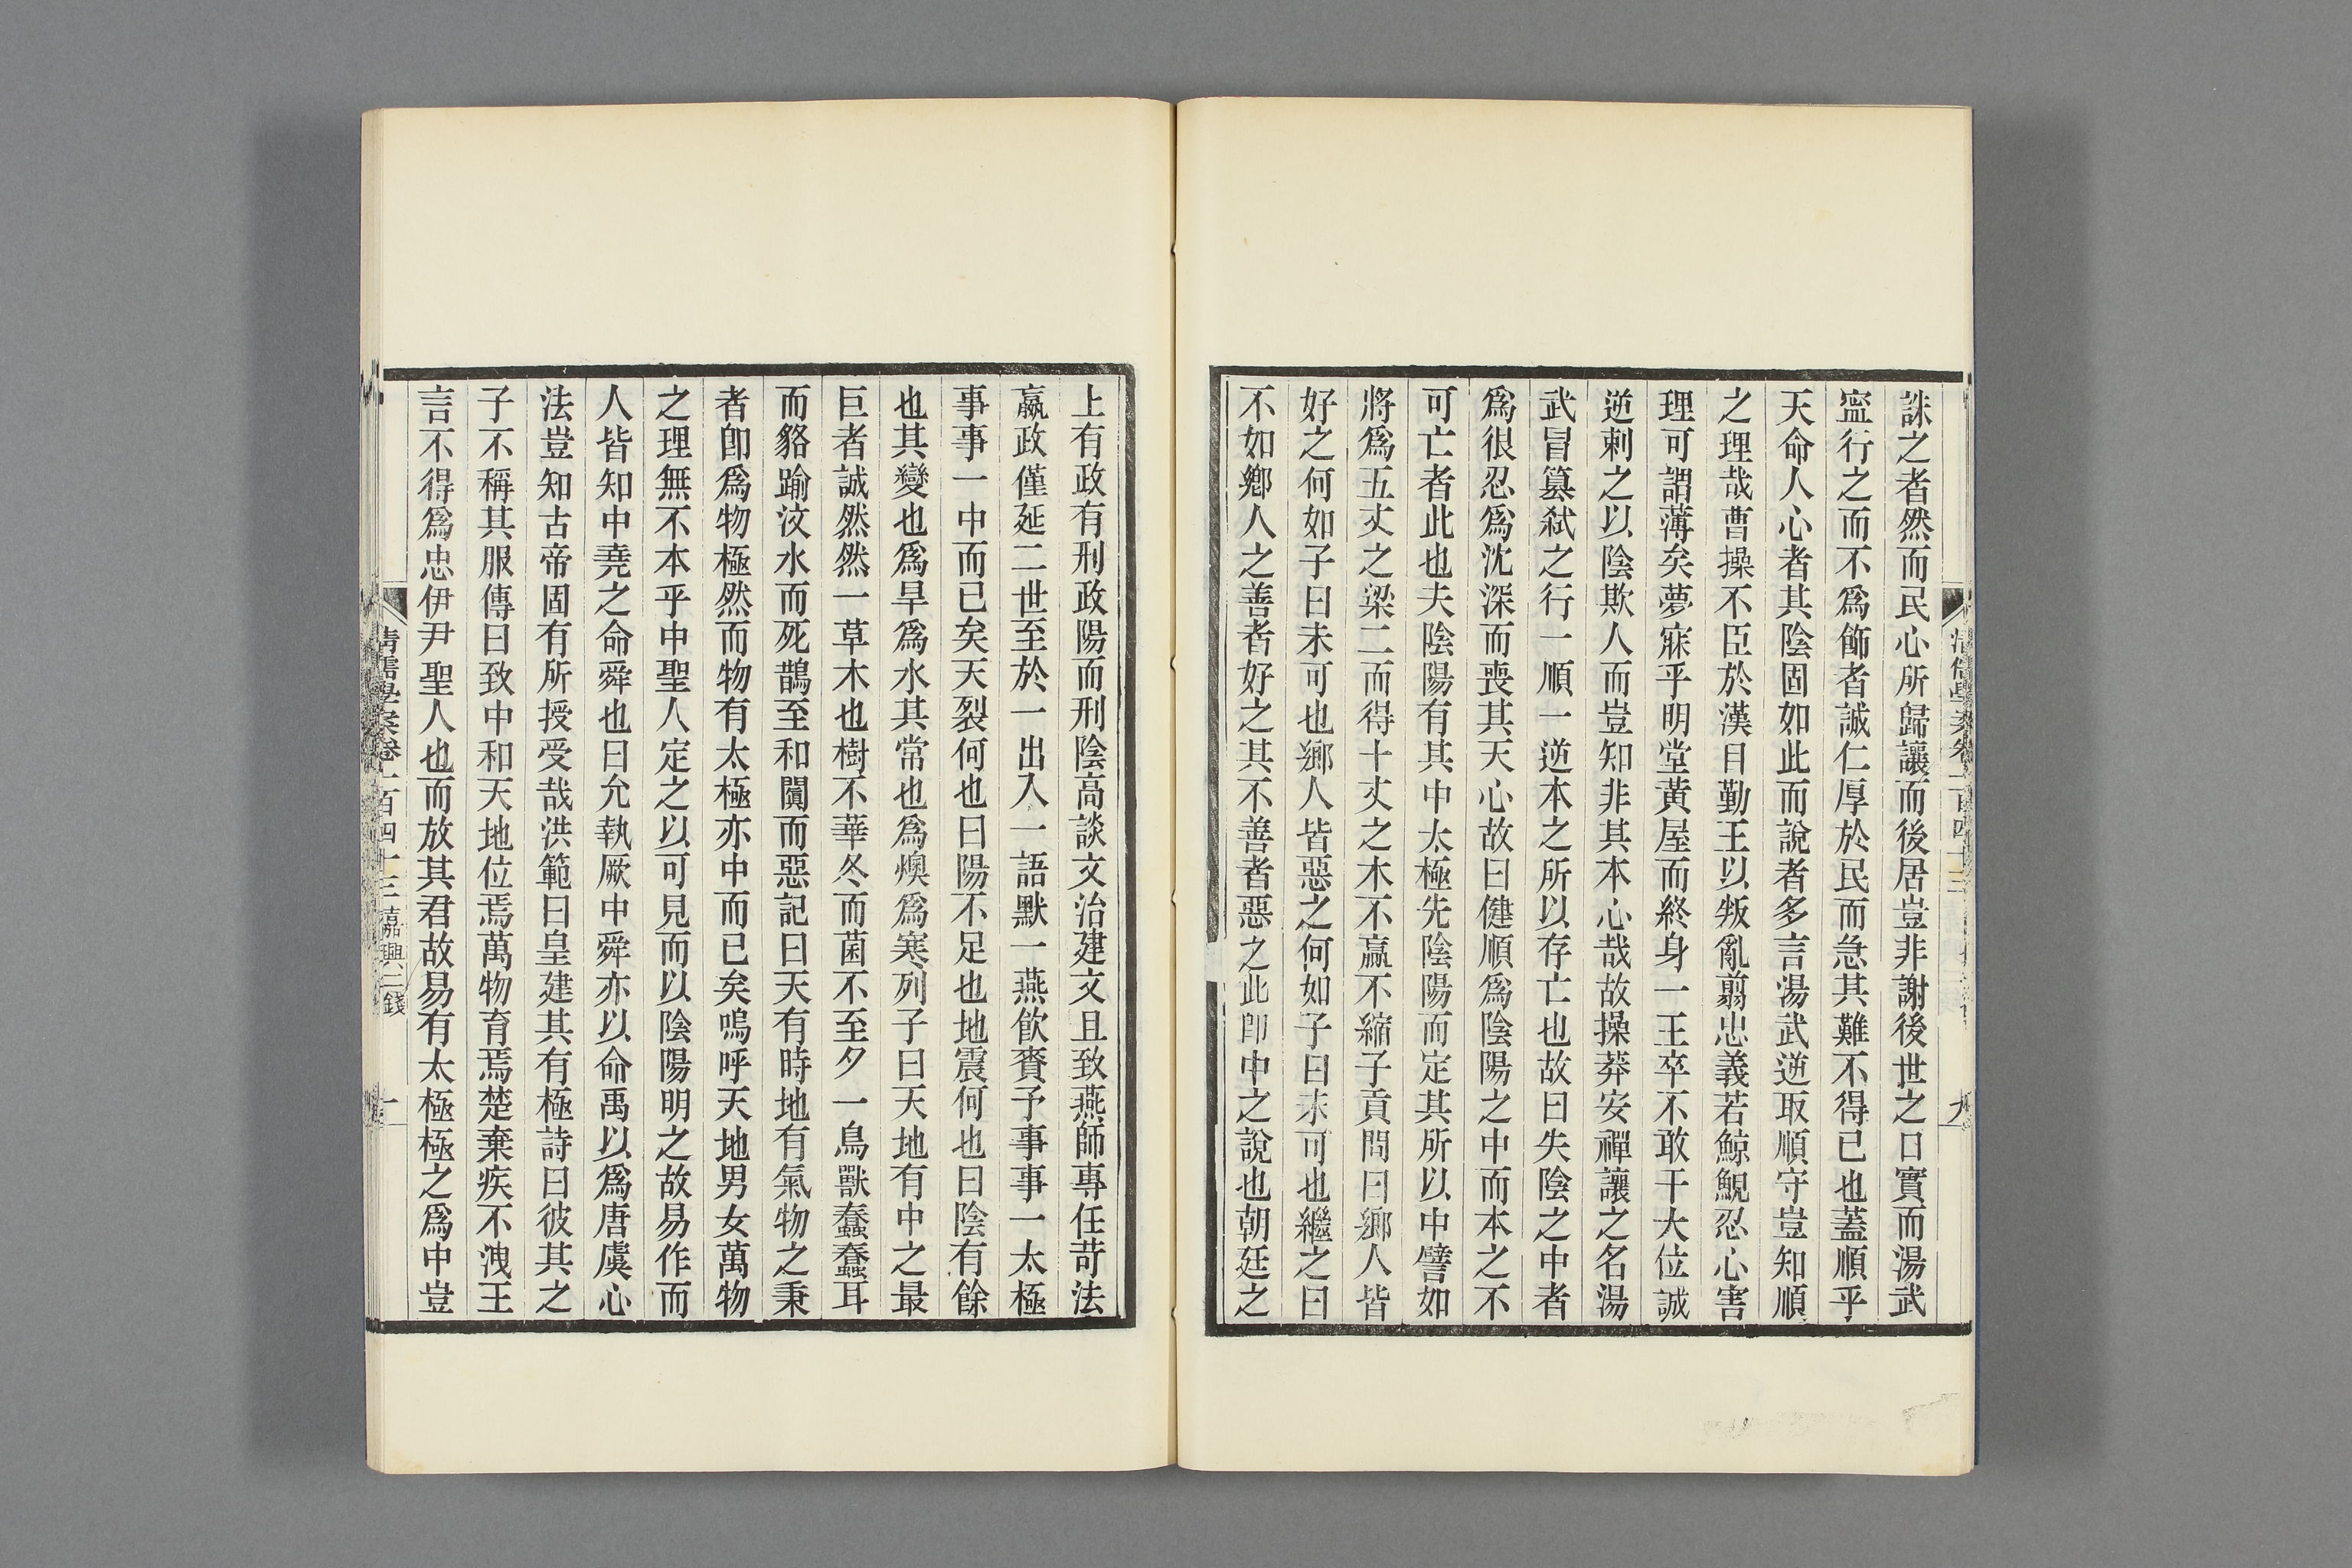 誅之者然而民心所歸讓而後居豈非謝後世之口實而湯武
寍行之而不爲飾者誠仁厚於民而急其難不得已也蓋順乎
天命人心者其陰固如此而說者多言湯武逆取順守豈知順
之理哉曹操不臣於漢日勤王以叛亂翦忠義若鯨鯢忍心害
理可謂薄矣夢寐乎明堂黃屋而終身一王卒不敢干大位誠
逆刺之以陰欺人而豈知非其本心哉故操莽安禪讓之名湯
武冒篡弒之行一順一逆本之所以存亡也故曰失陰之中者
爲很忍爲沈深而喪其天心故曰健順爲陰陽之中而本之不
可亡者此也夫陰陽有其中太極先陰陽而定其所以中譬如
將爲五丈之梁二而得十丈之木不贏不縮子貢問曰鄉人皆
好之何如子曰未可也鄉人皆惡之何如子曰未可也繼之曰
不如鄉人之善者好之其不善者惡之此卽中之說也朝廷之
上有政有刑政陽而刑陰高談文治建文且致燕師專任苛法
嬴政僅延二世至於一出入一語默一燕飮賚予事事一太極
事事一中而已矣天裂何也曰陽不足也地震何也曰陰有餘
也其變也爲旱爲水其常也爲燠爲寒列子曰天地有中之最
巨者誠然然一草木也樹不華冬而菌不至夕一鳥獸蠢蠢耳
而貉踰汶水而死鵲至和闐而惡記曰天有時地有氣物之秉
者卽爲物極然而物有太極亦中而已矣嗚呼天地男女萬物
之理無不本乎中聖人定之以可見而以陰陽明之故易作而
人皆知中堯之命舜也曰允執厥中舜亦以命禹以爲唐虞心
法豈知古帝固有所授受哉洪範曰皇建其有極詩曰彼其之
子不稱其服傳曰致中和天地位焉萬物育焉楚棄疾不洩王
言不得爲忠伊尹聖人也而放其君故易有太極極之爲中豈
清儒學案卷一百四十三嘉興二錢